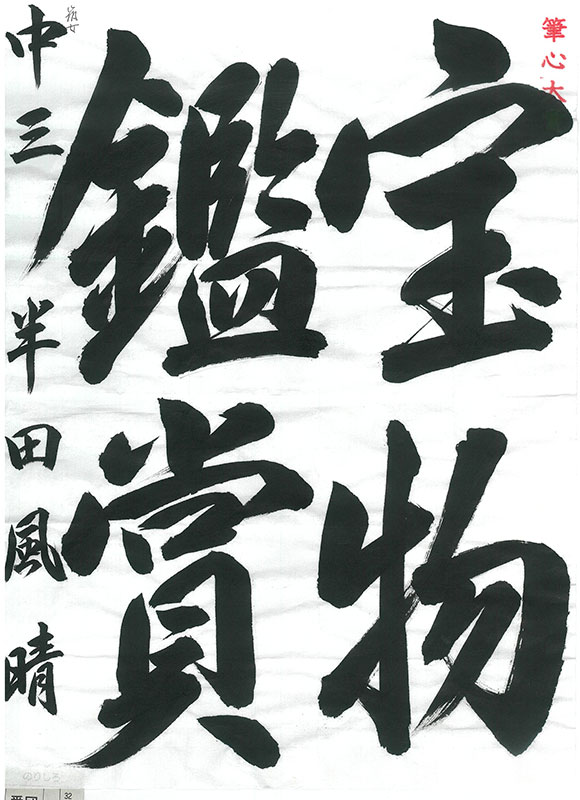 筆心大
宝物
鑑賞
中三半田風晴
のりしろ
32